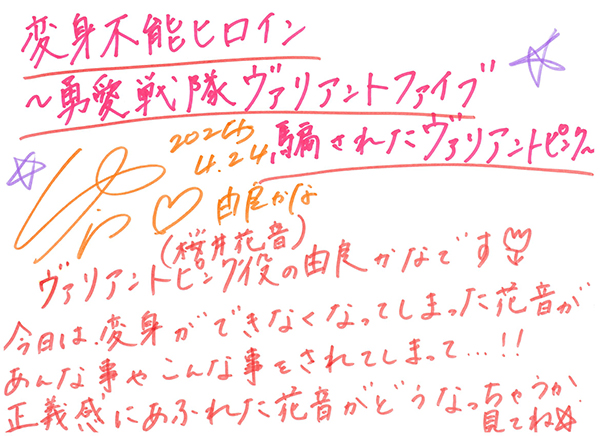 変身不能ヒロイン
~勇愛戦隊ヴァリアントファイブ
騙されたヴァリアントピンク~
2024
4.24
由良かな
(桜井花音)
ヴァリアントピンク役の由良かなです
今日は、変身ができなくなってしまった花音が
あんな事やこんな事をされてしまって…!!
正義感にあふれた花音がどうなっちゃうか
見てね☆